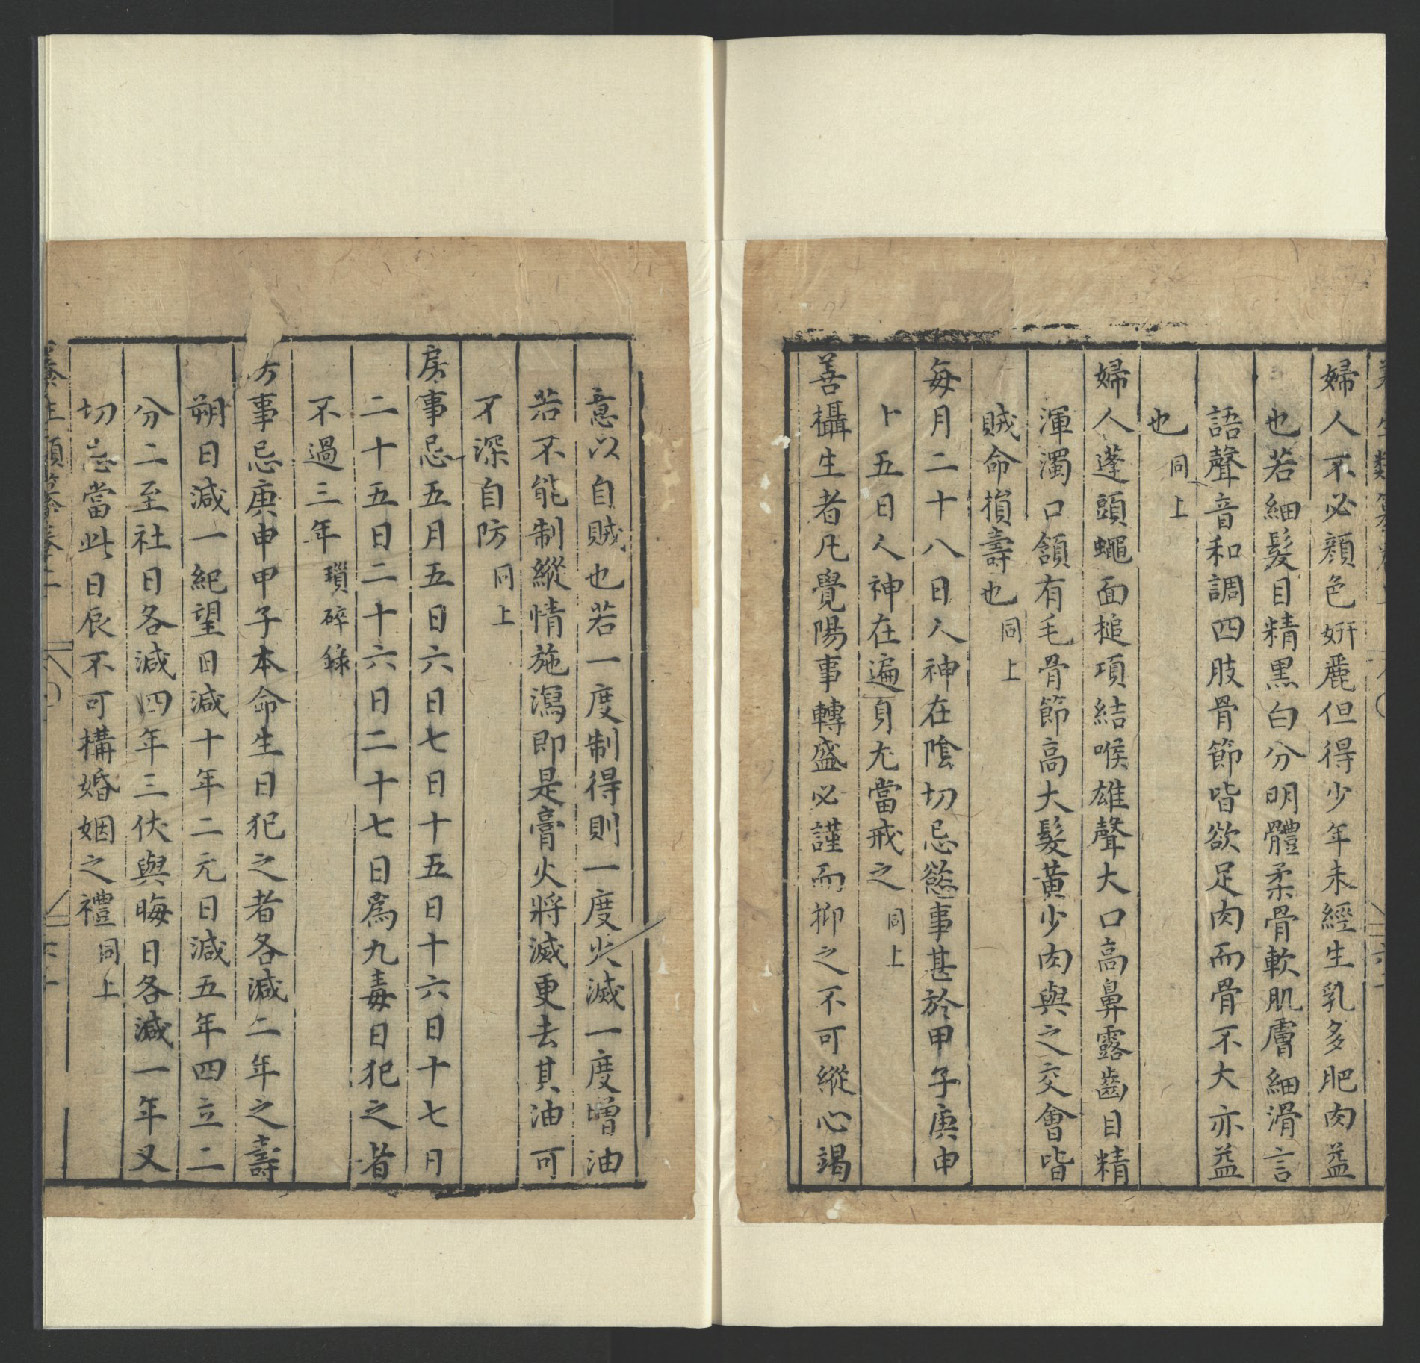 婦人不必顔色妍麗但得少年未經生乳多肥肉益
也若細髮目精黑白分明體柔骨軟肌膚細滑言
語聲音和調四肢骨節皆欲足肉而骨不大亦益
也同上
婦人蓬頭蠅面搥項結喉雄聲大口高鼻露齒目精
渾濁口頷有毛骨節高大髮黃少肉與之交會皆
賊命損壽也同上
每月二十八日人神在陰切忌慾事甚於甲子庚申
十五日人神在遍身尤當戒之同上
善攝生者凡覺陽事轉盛必謹而抑之不可縱心竭
意以自賊也若一度制得則一度火滅一度增油
若不能制縱情施瀉即是膏火將滅更去其油可
不深自防同上
房事忌五月五日六日七日十五日十六日十七日
二十五日二十六日二十七日為九毒日犯之者
不過三年瑣碎錄
房事忌庚申甲子本命生日犯之者各減二年之壽
朔日減一紀望日減十年二元日減五年四立二
分二至社日各減四年三伏與晦日各減一年又
切忌當此日辰不可構婚姻之禮同上
養生類纂卷上